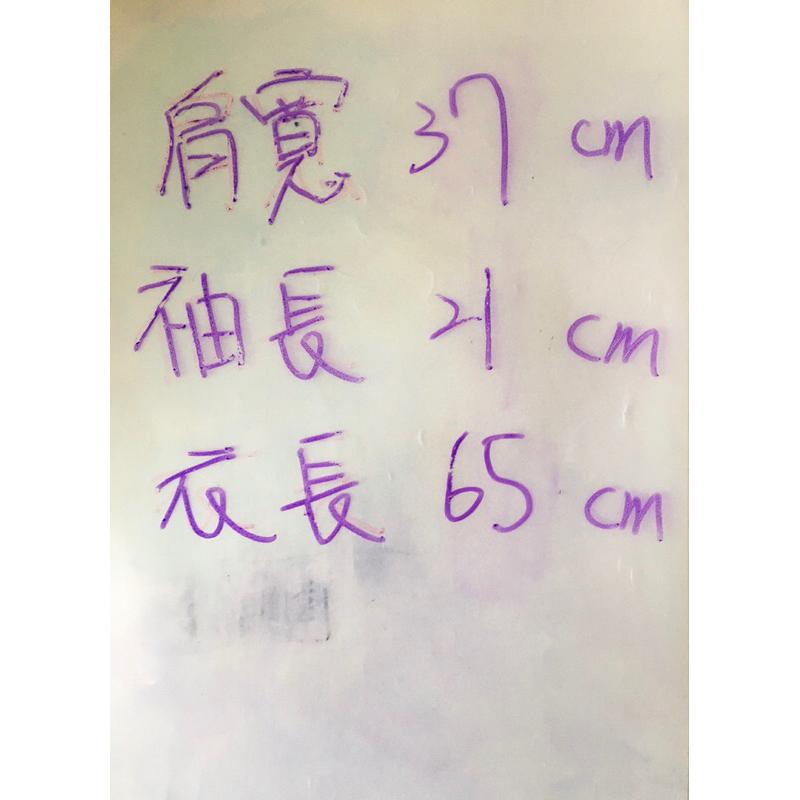 肩寬 37 cm
袖長 21 cm
衣長 65 cm